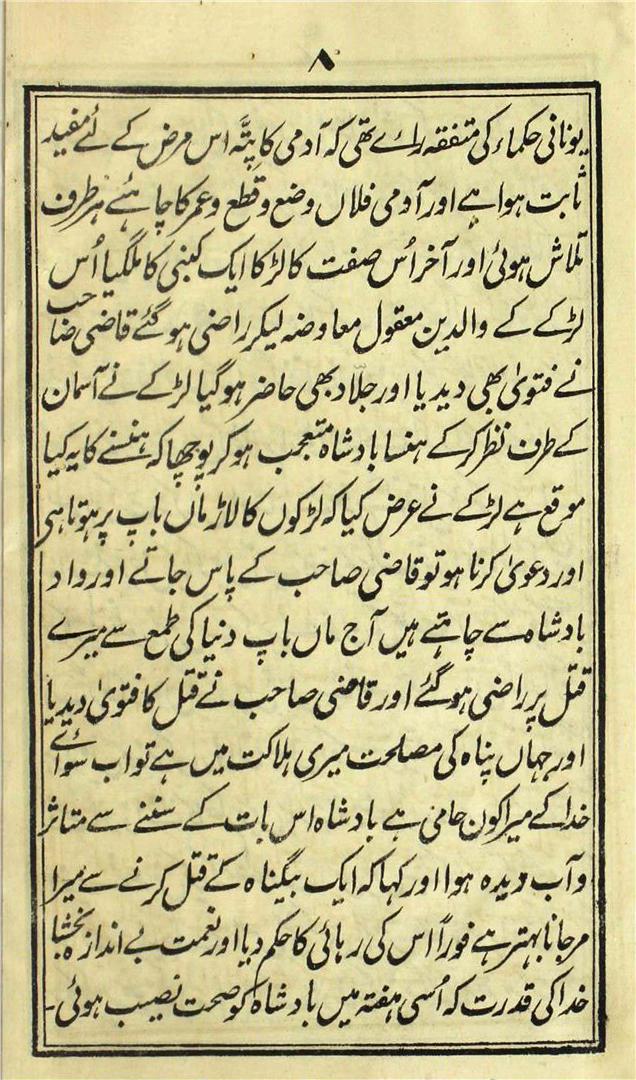 ۸
یونانی حکماء کی متفقہ راے تھی کہ آدمی کا پِتَّہ اس مرض کے لئے مفید
ثابت ہوا ہے اور آدمی فلاں وضع و قطع و عمر کا چاہئے ہر طرف
تلاش ہوئی اور آخر اُس صفت کا لڑکا ایک کبنی کا ملگیا اُس
لڑکے کے والدین معقول معاوضہ لیکر راضی ہو گئے قاضی صاحب
نے فتویٰ بھی دیدیا اور جلّاد بھی حاضر ہو گیا لڑکے نے آسمان
کے طرف نظر کر کے ہنسا بادشاہ متعجب ہو کر پوچھا کہ ہنسنے کا یہ کیا
موقع ہے لڑکے نے عرض کیا کہ لڑکوں کا لاڑ ماں باپ پر ہوتا ہی
اور دعویٰ کرنا ہو تو قاضی صاحب کے پاس جاتے اور داد
بادشاہ سے چاہتے ہیں آج ماں باپ دنیا کی طمع سے میرے
قتل پر راضی ہو گئے اور قاضی صاحب نے قتل کا فتویٰ دیدیا
اور جہاں پناہ کی مصلحت میری ہلاکت میں ہے تو اب سواے
خدا کے میرا کون حامی ہے بادشاہ اس بات کے سننے سے متاثر
و آب دیدہ ہوا اور کہا کہ ایک بیگناہ کے قتل کرنے سے میرا
مر جانا بہتر ہے فوراً اس کی رہائی کا حکم دیا اور نعمت بے اندازہ بخشا
خدا کی قدرت کہ اُسی ہفتہ میں بادشاہ کو صحت نصیب ہوئی۔